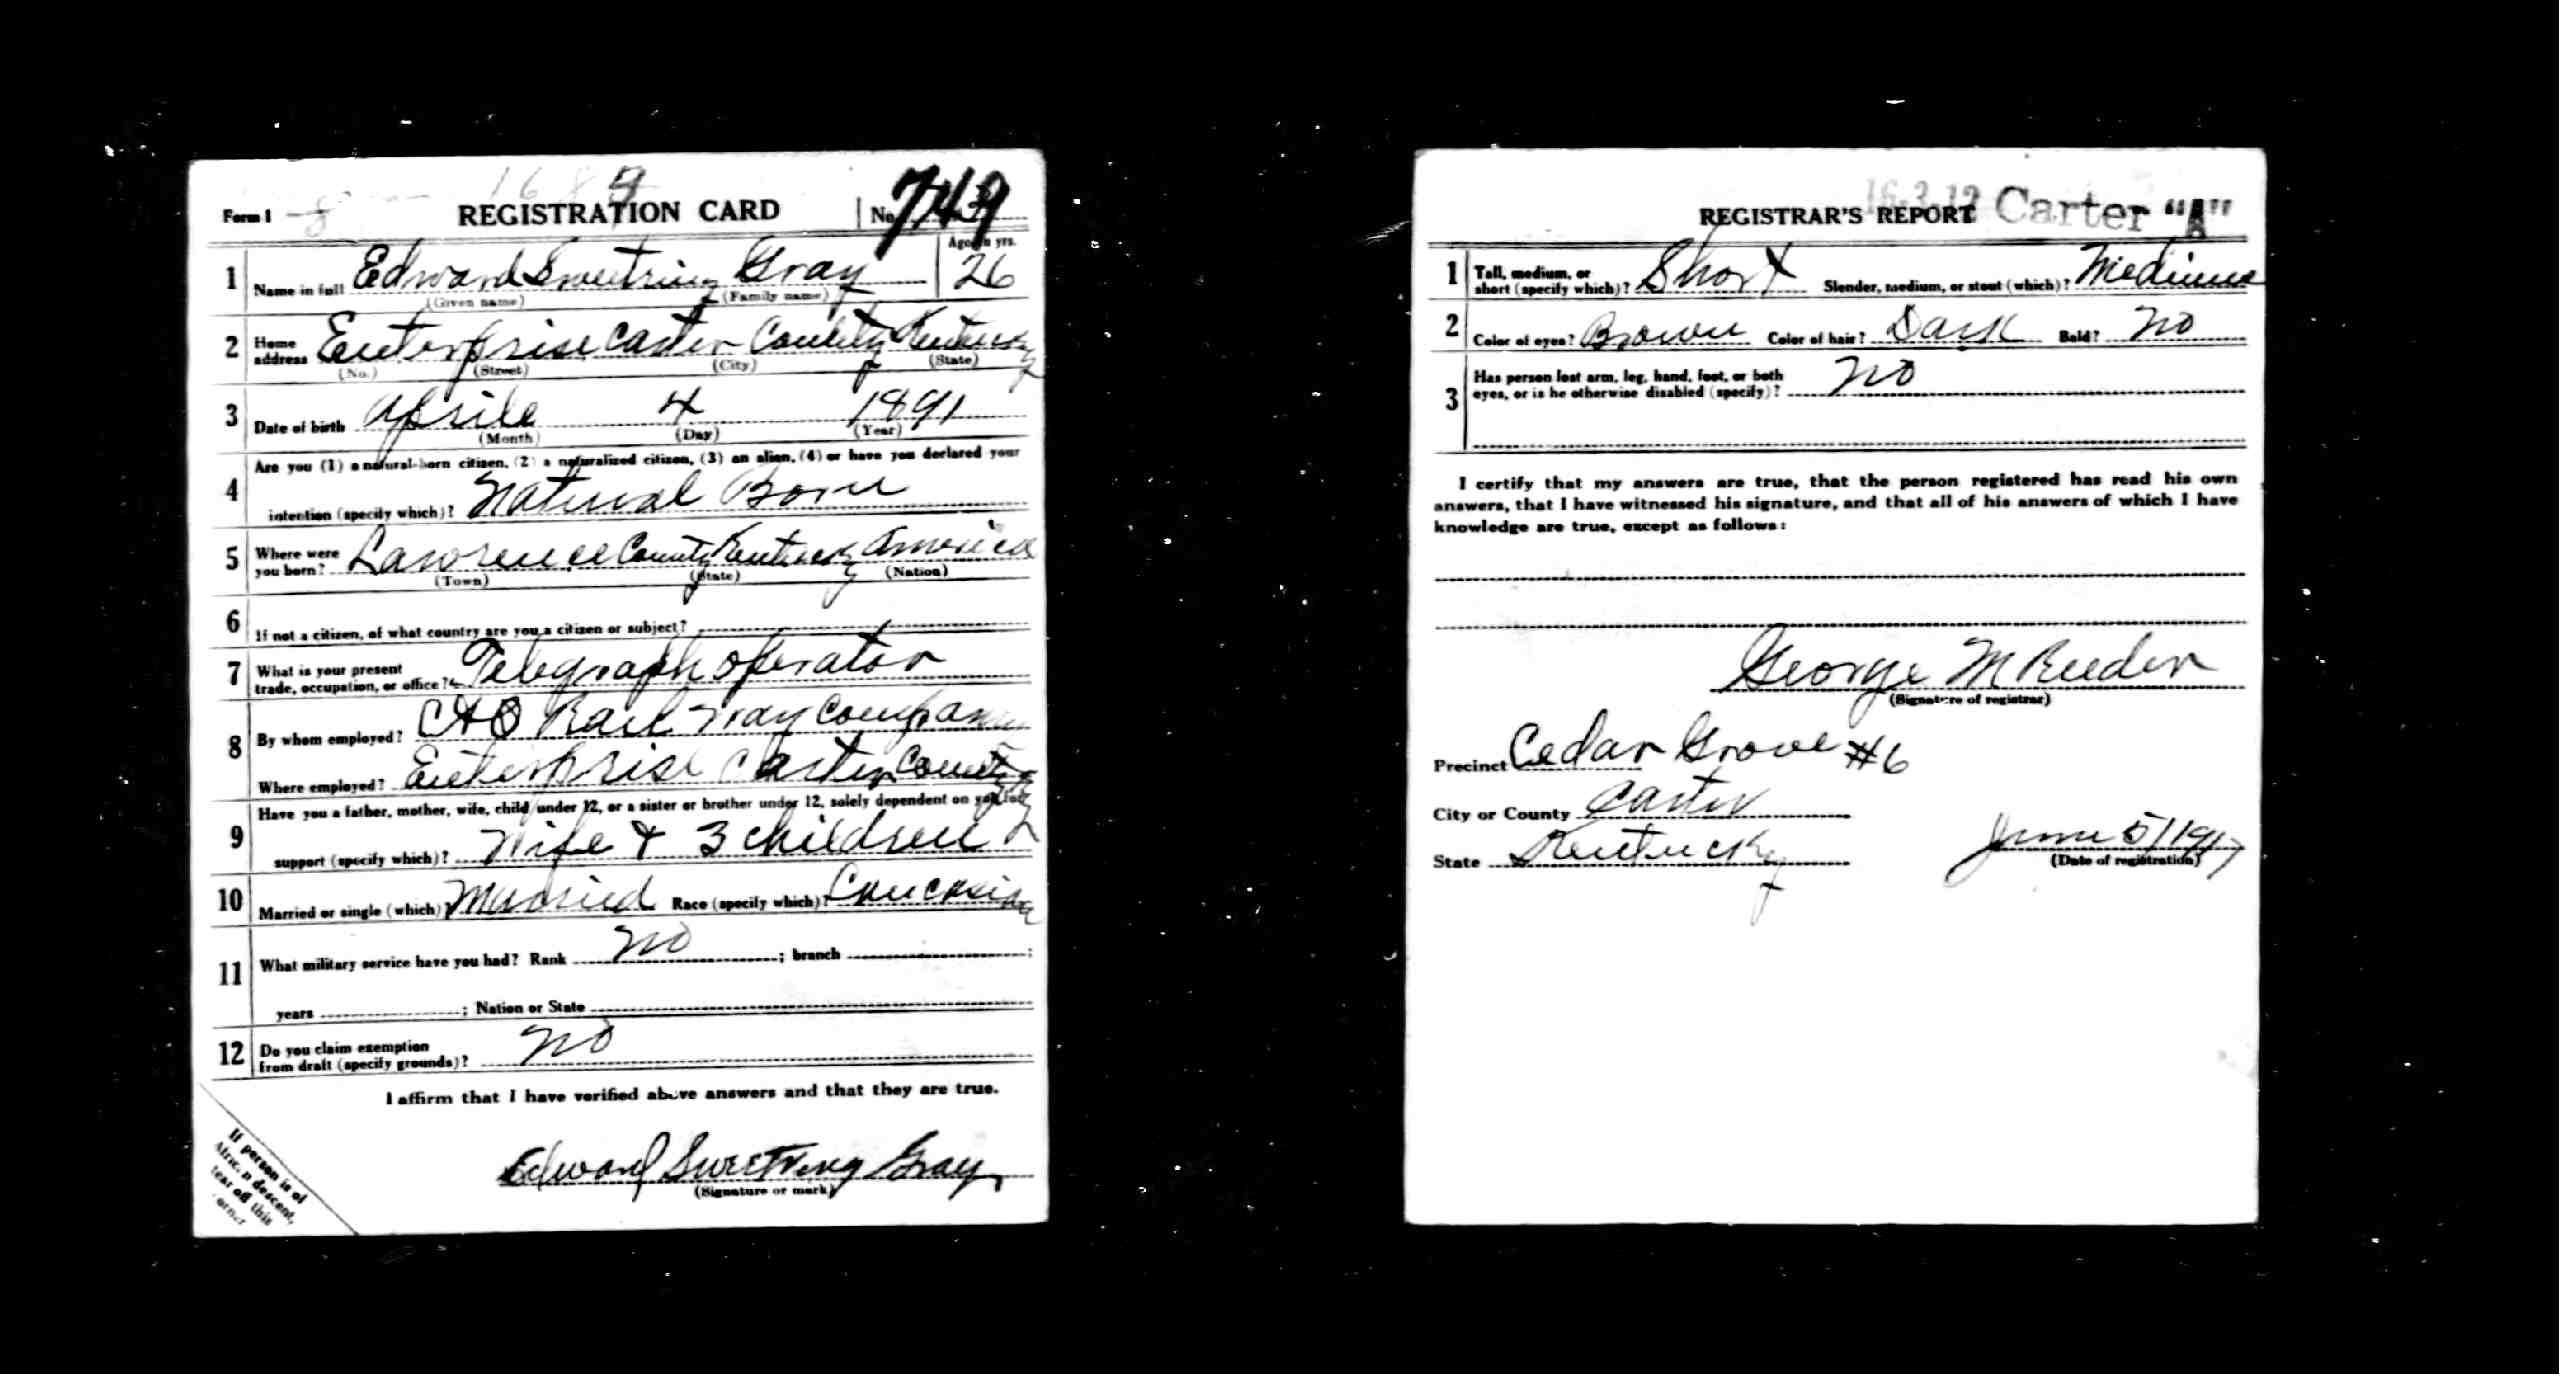 Form 1 REGISTRATION CARD No. 749
Age in yrs.
1 Name in full Edward Sweetring Gray 26
(Given name) (Family name)
2 Home address Enterprise Carter County Kentucky
(No.) (Street) (City) (State)
3 Date of birth Aprile 4 1891
(Month) (Day) (Year)
Are you (1) a natural-born citizen, (2) a naturalized citizen, (3) an alien, (4) or have you declared your
4 intention (specify which)? Natural Born
5 Where were you born? Lawrence County Kentucky America
(Town) (State) (Nation)
6 If not a citizen, of what country are you a citizen or subject?
7 What is your present
trade, occupation, or office? Telegraph operator
8 By whom employed? C & O Rail way Company
Where employed? Enterprise Carter County
Have you a father, mother, wife, child under 12, or a sister or brother under 12, solely dependent on you for
9 support (specify which)? Wife & 3 children
10 Married or single (which)? Married Race (specify which)? Caucasian
11 What military service have you had? Rank no ; branch ;
years ; Nation or State
12 Do you claim exemption
from draft (specify grounds)? no
I affirm that I have verified above answers and that they are true.
Edward Sweetring Gray
(Signature or mark)
If person is of
African descent,
tear off this
corner
REGISTRAR'S REPORT 16-3-12 Carter "A"
1 Tall, medium, or
short (specify which)? Short Slender, medium, or stout (which)? Medium
2 Color of eyes? Brown Color of hair? Dark Bald? No
3 Has person lost arm, leg, hand, foot, or both
eyes, or is he otherwise disabled (specify)? No
I certify that my answers are true, that the person registered has read his own
answers, that I have witnessed his signature, and that all of his answers of which I have
knowledge are true, except as follows:
George M Reeder
(Signature of registrar)
Precinct Cedar Grove #6
City or County Carter
State Kentucky
June 5/1917
(Date of registration)